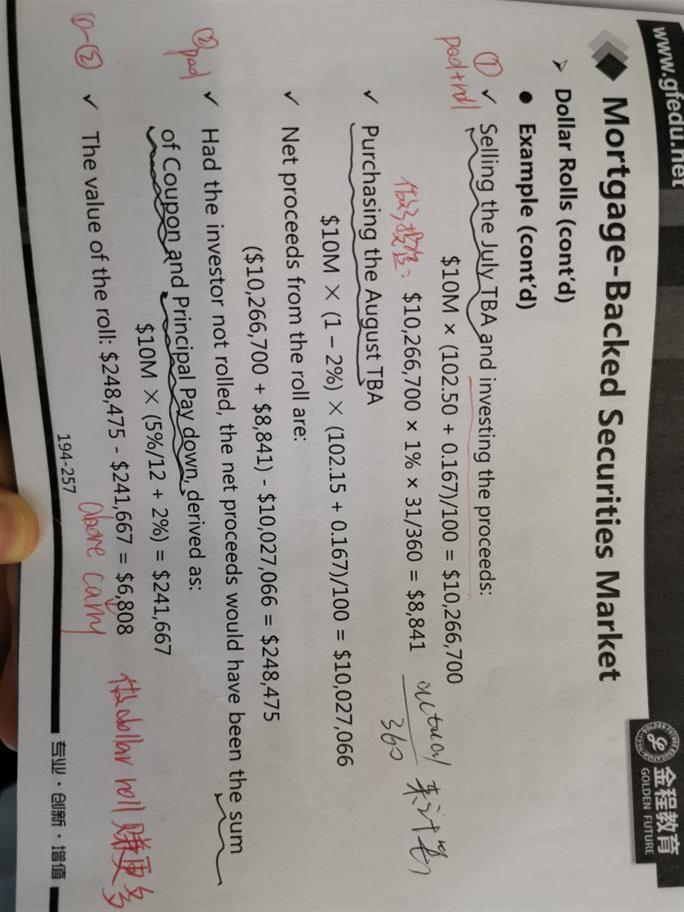 www.gfedu.net
金程教育
GOLDEN FUTURE
Mortgage-Backed Securities Market
➢ Dollar Rolls (cont'd)
● Example (cont'd)
①
✓ Selling the July TBA and investing the proceeds:
$10M × (102.50 + 0.167)/100 = $10,266,700
$10,266,700 × 1% × 31/360 = $8,841
actual
360
来计算
✓ Purchasing the August TBA
$10M × (1 – 2%) × (102.15 + 0.167)/100 = $10,027,066
✓ Net proceeds from the roll are:
($10,266,700 + $8,841) - $10,027,066 = $248,475
②
✓ Had the investor not rolled, the net proceeds would have been the sum
of Coupon and Principal Pay down, derived as:
$10M × (5%/12 + 2%) = $241,667
①-②
✓ The value of the roll: $248,475 - $241,667 = $6,808
above carry
做dollar roll 赚更多
194-257
专业·创新·增值